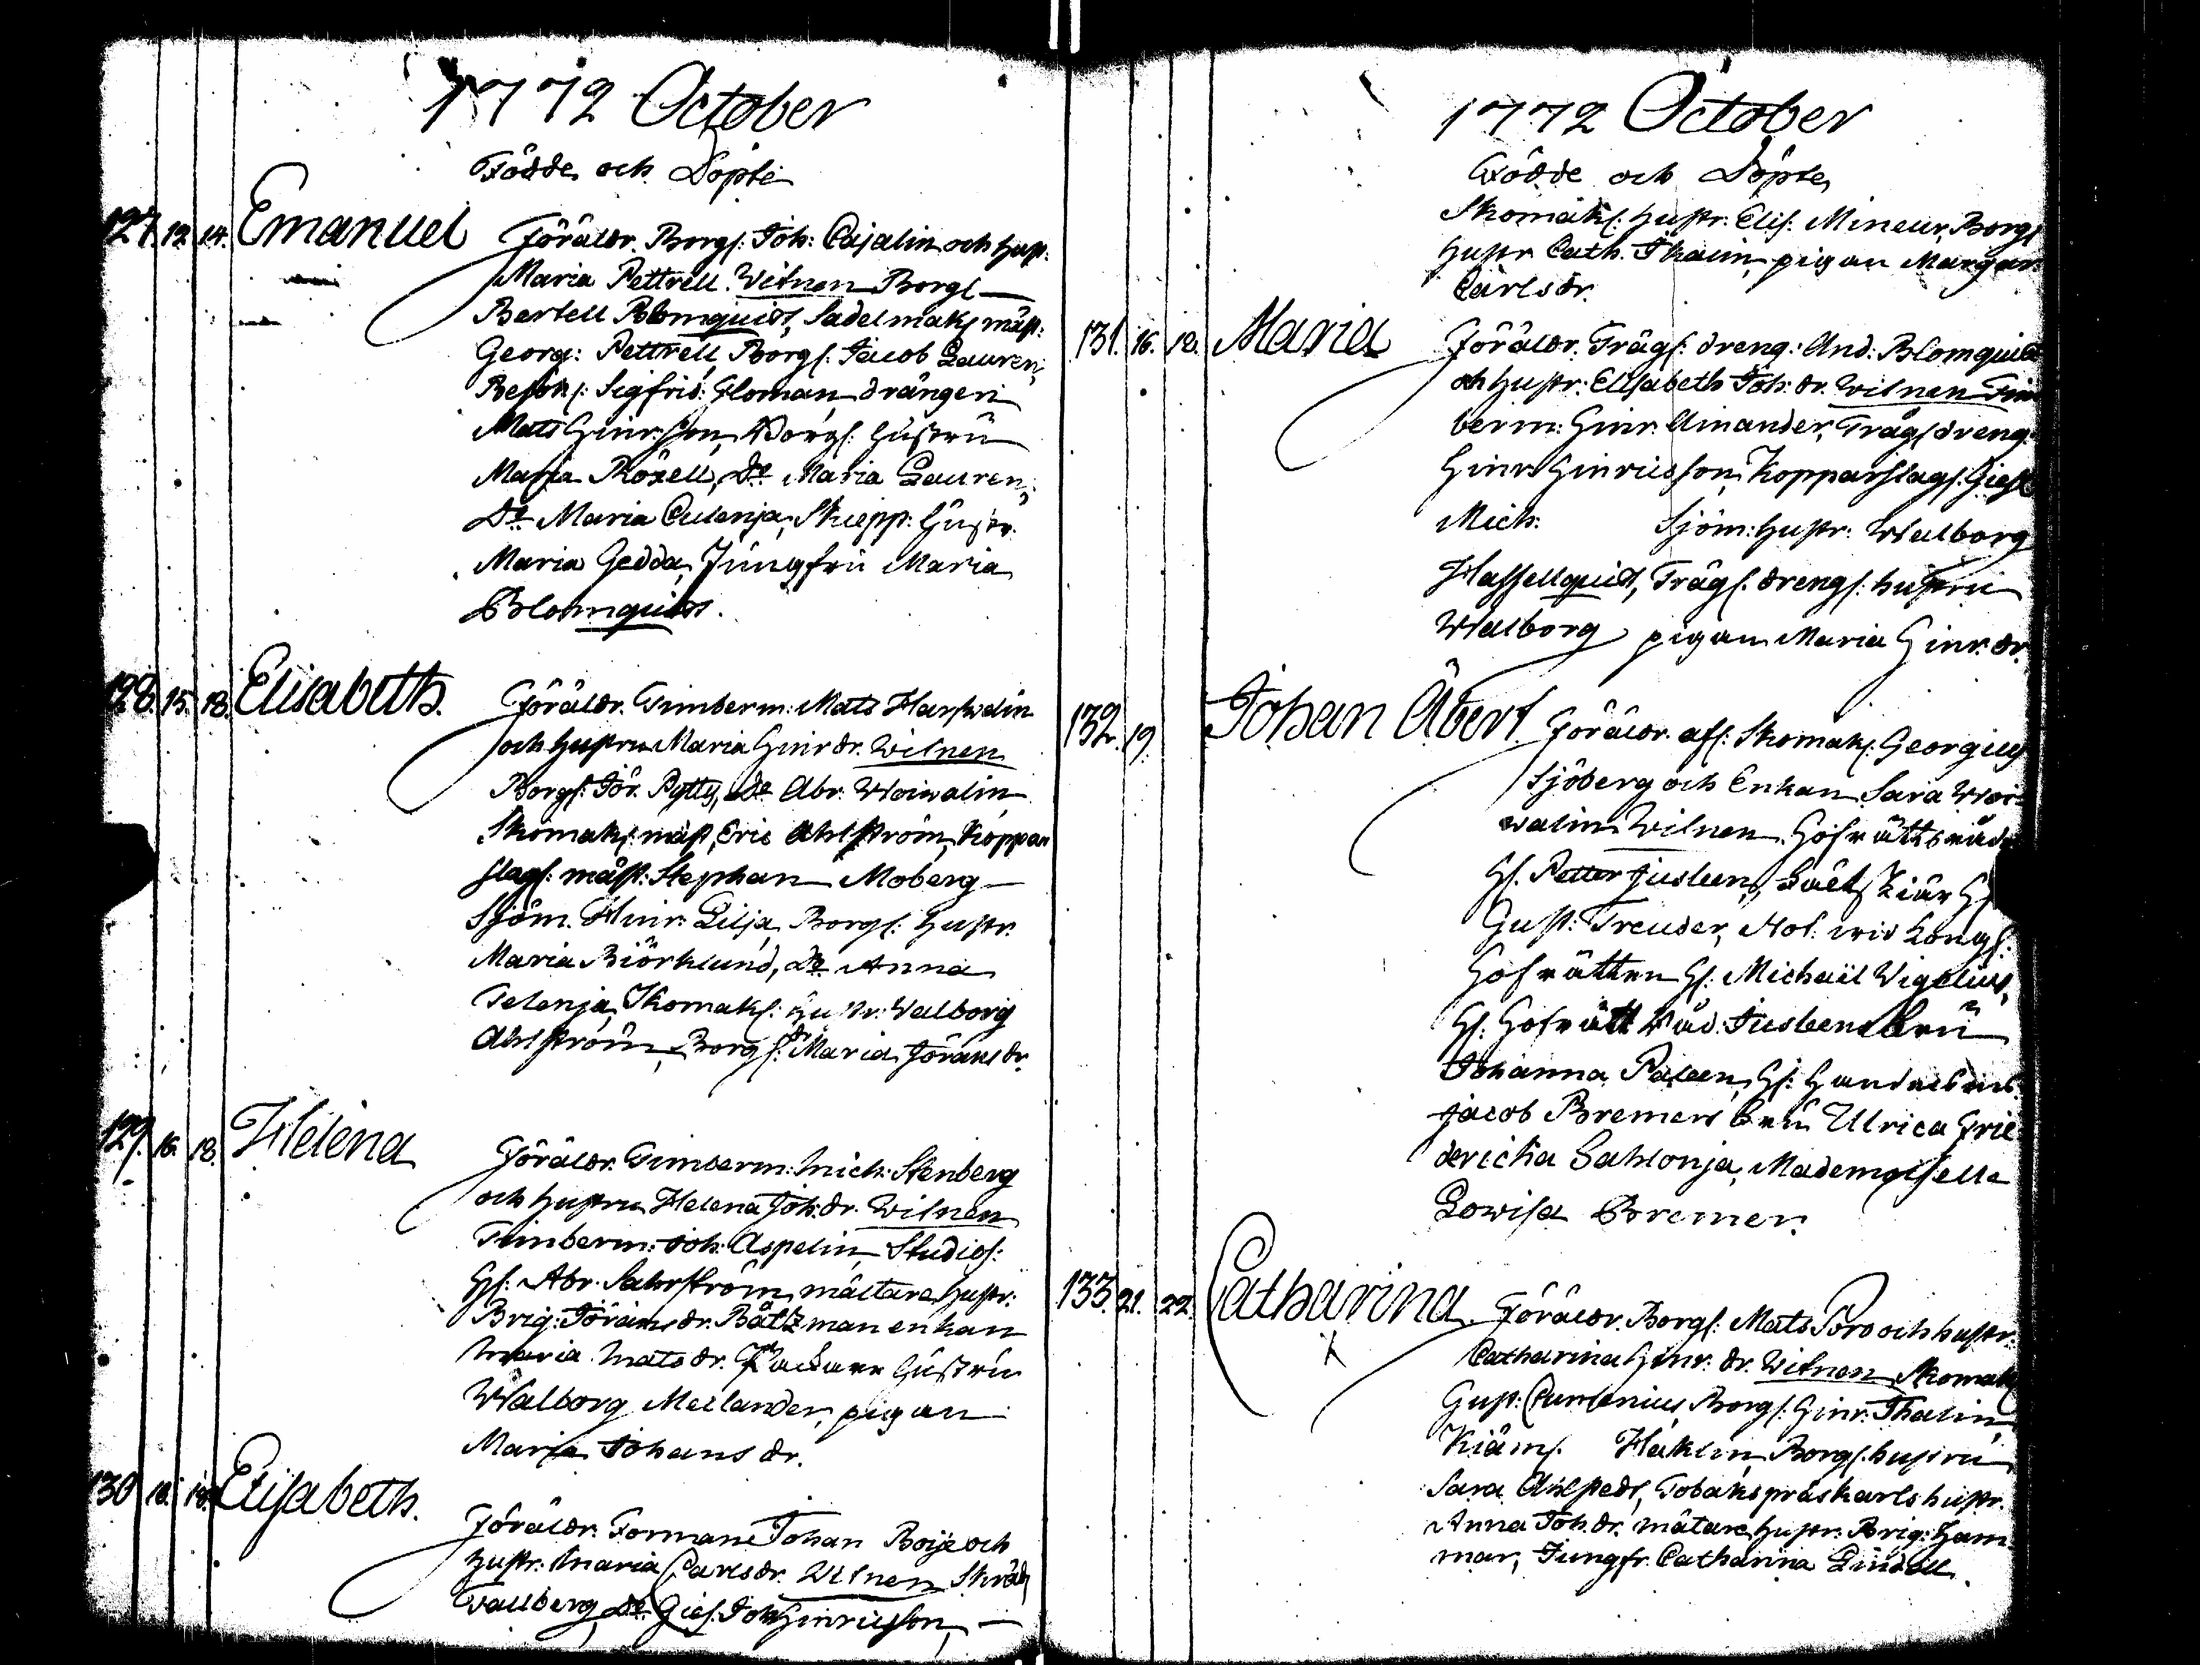 1772 October
Födde och Döpte
127. 12. 14. Emanuel Föräldr. Borgs: Joh: Cajalin och hust:
Maria Pettrell. Witnen Borgs
Bertell Blomquist, Sadelmaks mäst:
Georg: Pettrell, Borgs: Jacob Lauren,
Sigfrid: Floman, drängen
Mats Hinr:sson, Borgs: hustru
Maria Roxell, Do Maria Lauren,
Do Maria, Skepp: hustr:
Maria Gedda, Jungfru Maria
Blomquist.
128. 15. 18. Elisabeth. Föräldr. Timberm: Mats
och hustru Maria Hinr dr. Witnen
Borgs: Jör. Pytty, Do Abr. Woiwalin
Skomaks: mäst, Eric Ahlström, Koppar
slags: mäst: Stephan Moberg
Sjöm. Hinr: Lilja, Borgs: hustr.
Maria Biörklund, Do Anna
Telenja, Skomaks: hustr: Walborg
Ahlström, Borgs: dr Maria Görans dr.
129. 16. 18. Helena Föräldr. Timberm: Mich: Stenberg
och hustru Helena Joh: dr. Witnen
Timberm: Joh: Aspelin, Studios:
Hs: Abr. Sahrström, mältare hustr:
Brig: Jörans dr. Båtzman enkan
Maria Mats dr. hustru
Walborg Mellander, pigan
Maria Johans dr.
130 18. 18. Elisabeth. Föräldr. Formane Johan Boije och
hustr: Maria Carlsdr. Witnen Skräd
Wallberg, Do Gies. Joh Hinricsson,
1772 October
Födde och Döpte
Skomaks: hustr: Elis: Mineur, Borgs
hustr Cath. Thalin, pigan Margar:
Carlsdr.
131. 16. 18. Maria Föräldr. Trägs: dreng: And: Blomquist
och hustr: Elisabeth Joh: dr. Witnen Tim
berm: Hinr. Ainander, Trägs dreng:
Hinr Hinricsson, Kopparslags: Giesl
Mich: Sjöm: hustr: Walborg
Hassellquist, Trägs: drengs: hustru
Walborg pigan Maria Hinr. dr.
132. 19. Johan Abert Föräldr. afs: Skomaks: Georgius
Sjöberg och Enkan Sara Woi
walin Witnen Hofrättsråd
Hs: Petter Jusleen,
Gust: Treuder, Not: wid Kongs:
Hofrätten Hs: Michaël Wigelius,
Hs: Hofrätt Råd: Jusleens Frü
Johanna Paleen, Hs: Handelsm:
Jacob Bremers Frü Ulrica Frie
dericka Sahlonja, Mademoiselle
Lowisa Bremer.
133. 21. 22. Catharina Föräldr. Borgs: Mats Poro och hustr:
Catharina Hinr: dr. Witnen Skomaks
Gust: Cumlenius, Borgs: Hinr: Thalin,
Kiäms: Häklin, Borgs: hustru
Sara Ahlstedt, Tobakspråskarls hustr.
Anna Joh. dr. mätare hustr: Brig: Ham
mar, Jungfr. Catharina Lindell.